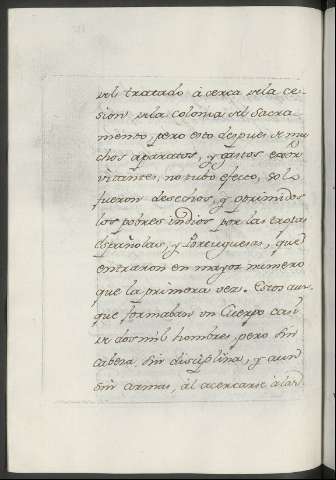 del tratado acerca dela ce-
sion dela colonia del Sacra-
mento, pero esto despues de mu-
chos aparatos, y gastos exor-
vitantes, no tubo efecto, solo
fueron desechos, y oprimidos
los pobres Yndios por las tropas
Españolas, y Portuguesas, que
entraron en mayor numero
que la primera vez. Estos aun-
que formaban un Cuerpo casi
de dos mil hombres, pero sin
cabeza, sin disciplina, y aun
sin armas, al acercarse à las